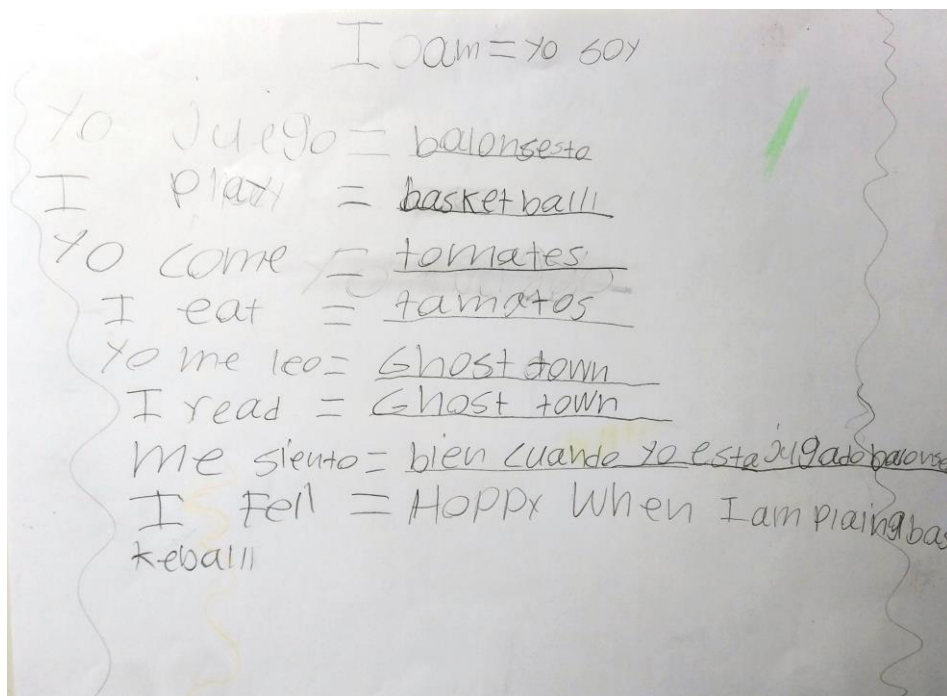 I am = yo soy
Yo juego = balonsesto
I play = basketballl
Yo come = tomates
I eat = tamatos
Yo me leo = Ghost town
I read = Ghost town
me siento = bien cuando yo esta jugado balonse
I Fell = Happy When I am plaing bas
keballl